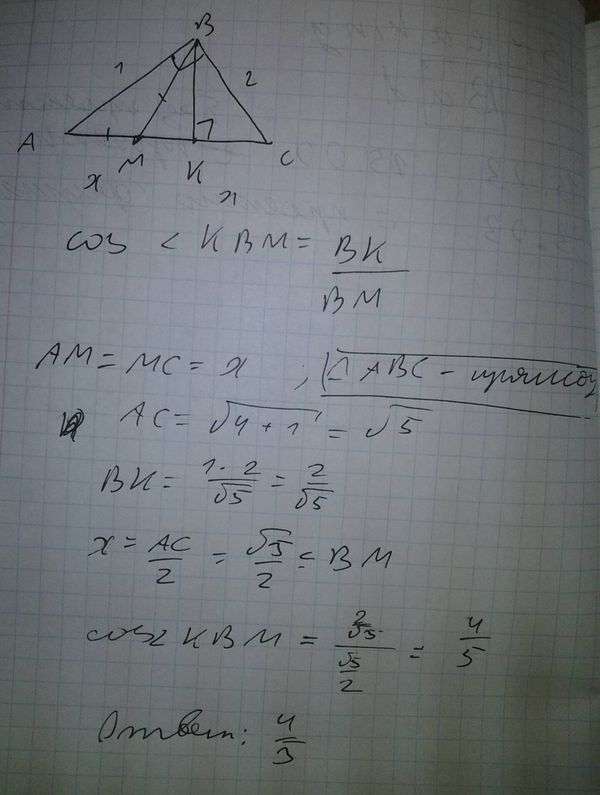 B
1
2
A
x
M
K
x
C
cos < KBM = BK / BM
AM = MC = x ; △ ABC - прямоу
AC = √4 + 1 = √5
BK = 1 · 2 / √5 = 2 / √5
x = AC / 2 = √5 / 2 = BM
cos ∠ KBM = 2/√5 / √5/2 = 4 / 5
Ответ: 4 / 3